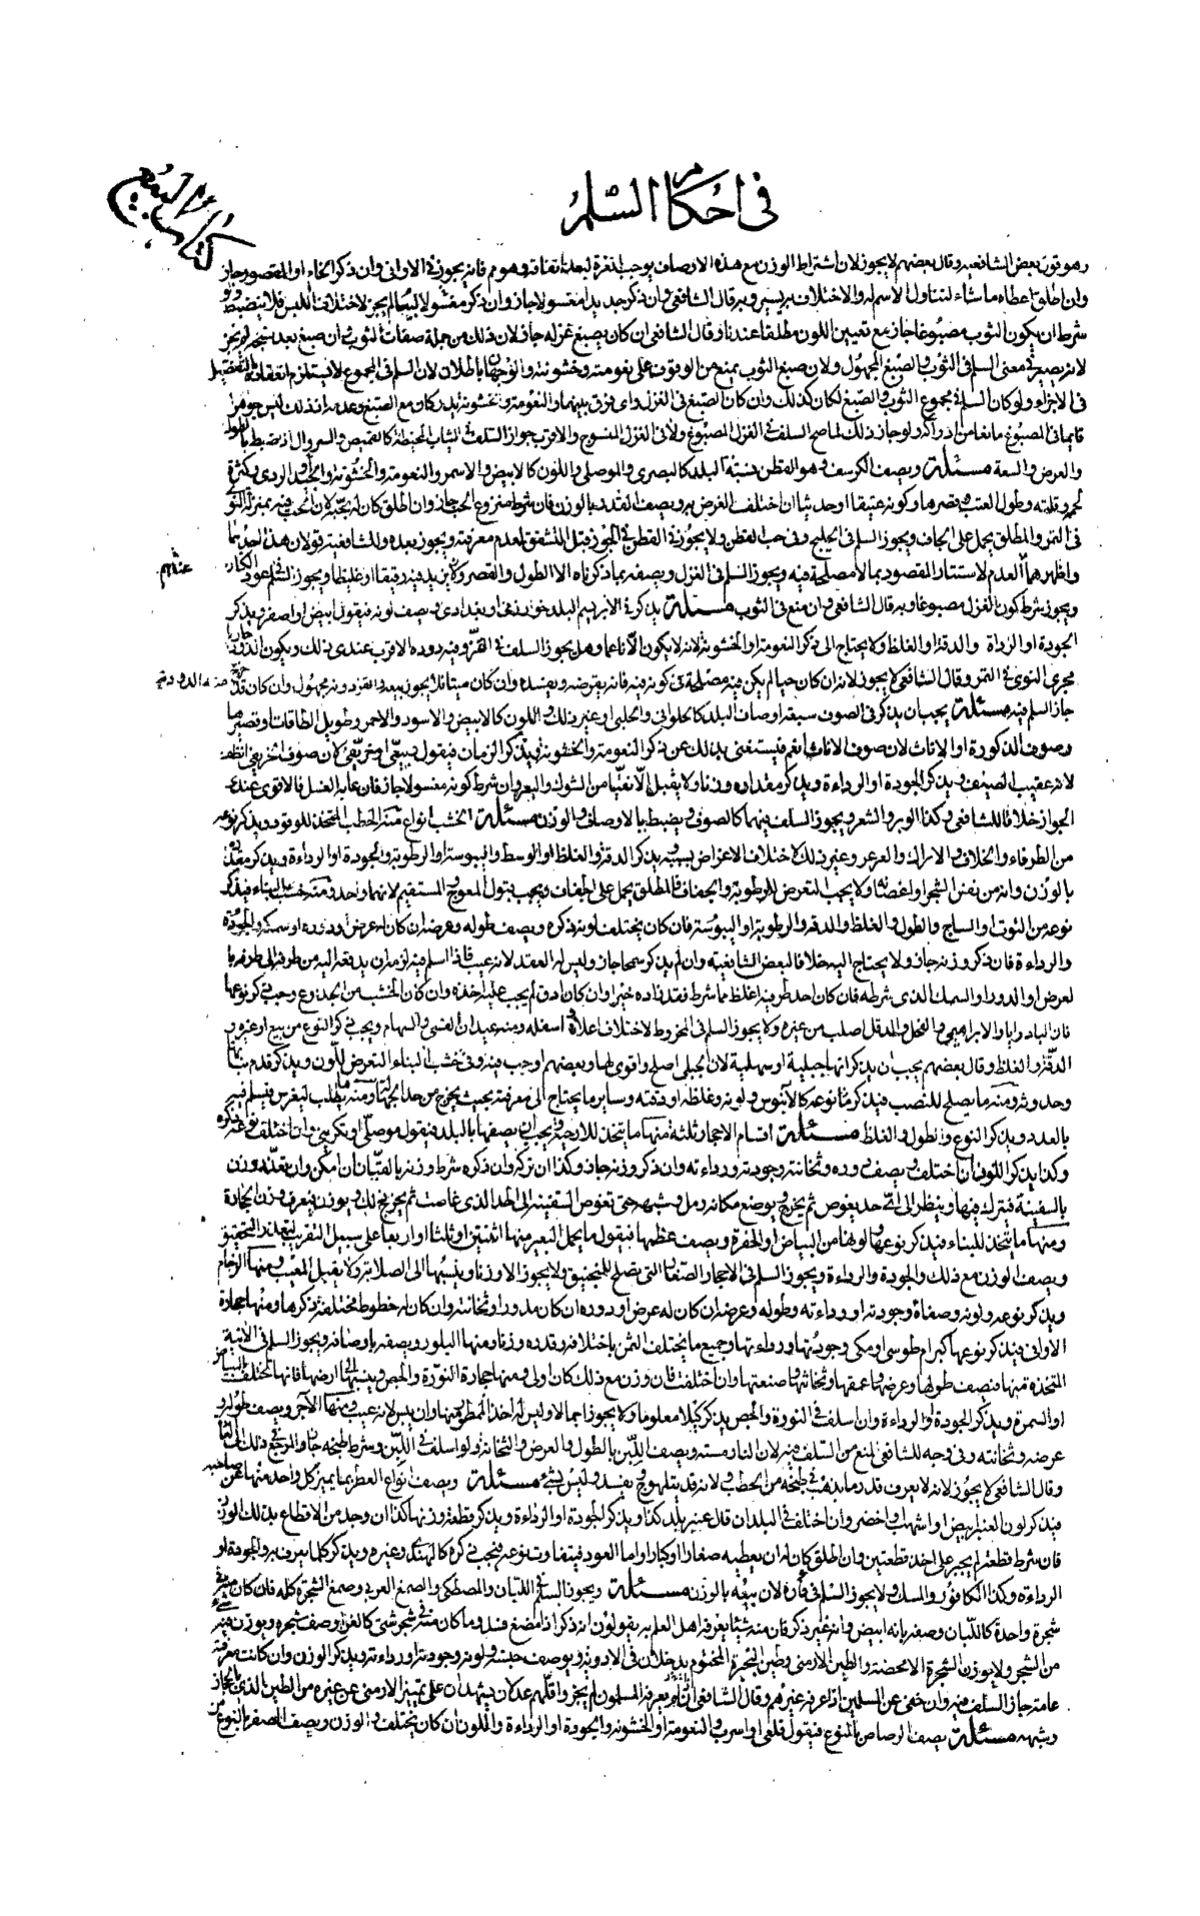 فى احكام السلم
كتاب البيع
وهو قول بعض الشافعيه وقال بعضهم لا يجوز لان اشتراط الوزن مع هذه الاوصاف يوجب لغرة لبعد اتفاقه وهو مم فانه يجوز فى الاوانى وان ذكر الخام او المقصور جاز
وان اطلق اعطاه ما شاء لتناول الاسم له والاختلاف به يسير وبه قال الشافعى فان ذكر جديدا مغسولا جاز وان ذكر مغسولا لبيسا لم يجز لاختلاف اللبس فلا ينضبط ولو
شرط ان يكون الثوب مصبوغا جاز مع تعيين اللون مطلقا عندنا وقال الشافعى ان كان يصبغ غزله جاز لان ذلك من جملة صفات الثوب وان صبغ بعد نسجه لم يجز
لانه يصير فى معنى السلم فى الثوب والصبغ المجهول ولان صبغ الثوب يمنع من الوقوف على نعومته وخشونته والوجهان باطلان لان السلم فى المجموع لا يستلزم
فى الاجزاء ولو كان السلم فى مجموع الثوب والصبغ لكان كذلك وان كان الصبغ فى الغزل واى فرق بينهما والنعومة والخشونة يدركان مع الصبغ وعدمه اذ ذلك ليس جوهرا
قايما فى المصبوغ مانعا من ادراكه ولو جاز ذلك لما صح السلف فى الغزل المصبوغ ولا فى الغزل المنسوج والاقرب جواز السلف فى الثياب المخيطة كالقميص والسروال اذا ضبط بالطول
والعرض والسعة مسئلة ويصف الكرسف وهو القطن بنسبة البلد كالبصرى والموصلى واللون كالابيض والاسمر والنعومة والخشونة والجيد والردى وبكثرة
لحمه وقلته وطول العتب وقصرها وكونه عتيقا او حديثا ان اختلف الغرض به ويصف القدر بالوزن فان شرط منزوع الحب جاز وان اطلق كان له بحبه لان الحب فيه بمنزلة النوى
فى التمر والمطلق يحمل على الجاف ويجوز السلم فى الحليج وفى حب القطن ولا يجوز فى القطن فى الجوز قبل التشقق لعدم معرفته ويجوز بعده وللشافعية قولان هذا احدهما
واظهرهما العدم لاستتار المقصود بما لا مصلحة فيه ويجوز السلم فى الغزل ويصفه بما ذكرناه الا الطول والقصر وان يزيد فيه رقيقا او غليظا ويجوز السلم فى
ويجوز بشرط كون الغزل مصبوغا وبه قال الشافعى وان منع فى الثوب مسئلة يذكر فى الابريسم البلد خوارزمى او بغدادى ويصف لونه فيقول ابيض او اصفر ويذكر
الجودة او الرداة والدقة او الغلظ ولا يحتاج الى ذكر النعومة او الخشونة لانه لا يكون الا ناعما وهل يجوز السلف فى القز وفيه دوده الاقرب عندى ذلك ويكون الدود جاريا
مجرى النوى فى التمر وقال الشافعى لا يجوز لانه ان كان حيا لم يكن فيه مصلحة فى كونه فيه فانه يقرضه ويفسده وان كان ميتا فلا يجوز بيعه والقز دونه مجهول وان كان قد خرج منه الدود
جاز السلم فيه مسئلة يجب ان يذكر فى الصوف سبعة اوصاف البلد كالحلوانى والحلبى او غير ذلك واللون كالابيض والاسود والاحمر وطويل الطاقات او قصيرها
وصوف الذكورة او الاناث لان صوف الاناث انعم فيستغنى بذلك عن ذكر النعومة والخشونة ويذكر الزمان فيقول ربيعى او خريفى لان صوف الخريف انظف
لانه عقيب الصيف ويذكر الجودة او الرداءة ويذكر مقداره وزنا ولا يقبل الا نقيا من الشوك والبعر وان شرط كونه مغسولا جاز فان عابه الغسل فالاقوى عندى
الجواز خلافا للشافعى وكذا الوبر والشعر ويجوز السلف فيهما كالصوف ويضبط بالاوصاف والوزن مسئلة الخشب انواع منه الحطب المتخذ للوقود ويذكر نوعه
من الطرفاء والخلاف والاراك والعرعر وغير ذلك لاختلاف الاغراض بسببه ويذكر الدقة والغلظ او الوسط واليبوسة او الرطوبة والجودة او الرداءة ويذكر مقداره
بالوزن وانه من نفس الشجر او اغصانها ولا يجب التعرض للرطوبة والجفاف فالمطلق يحمل على الجفاف ويجب قبول المعوج والمستقيم لانهما واحد ومنه خشب البناء فيذكر
نوعه من التوت او الساج والطول والغلظ والدقة والرطوبة او اليبوسة فان كان يختلف لونه ذكره ويصف طوله وعرضه ان كان له عرض او دوره او سمكه والجودة
والرداءة فان ذكر وزنه جاز ولا يحتاج اليه خلافا لبعض الشافعية وان لم يذكر سمحا جاز وليس له العقد لانه عيب فاذا اسلم فيه لزمه ان يدفعه اليه من طرفه الى طرفه بالعرض
او الدور او السمك الذى شرطه فان كان احد طرفيه اغلظ مما شرط فقد زاده خيرا وان كان ادق لم يجب عليه اخذه وان كان الخشب من الجذوع وجب ذكر نوعها
فان البادرايا والابراهيمى والنخل والدقل اصلب من غيره ولا يجوز السلم فى المخروط لاختلاف اعلاه واسفله ومنه عيدان القسى والسهام ويجب ذكر النوع من نبع او غيره و
الدقة والغلظ وقال بعضهم يجب ان يذكر انها جبلية او سهلية لان الجبلى اصلح واقوى لها وبعضهم اوجب فيه وفى خشب البناء التعرض للون ويذكر قدم نباته
وحدوثه ومنه ما يصلح للنصب فيذكر نوعه كالآبنوس ولونه وغلظه او دقته وساير ما يحتاج الى معرفته بحيث يخرج من حد الجهالة ومنه ما يطلب ليغرس فيسلم فيه
بالعدد ويذكر النوع والطول والغلظ مسئلة اقسام الاحجار ثلثة منها ما يتخذ للارحية فيجب ان يصفها بالبلد فيقول موصلى او تكريتى وان اختلف نوعه ذكره
وكذا يذكر اللون ان اختلف ويصف دوره وثخانته وجودته ورداءته وان ذكر وزنه جاز وكذا ان تركه وان ذكره شرط وزنه بالقبان ان امكن وان تعذر وزن
بالسفينة فيترك فيها وينظر الى اى حد يغوص ثم يخرج ويوضع مكانه رمل وشبهه حتى تغوص السفينة الى الحد الذى غاصت ثم يخرج ذلك ويوزن فيعرف وزن الحجارة
ومنها ما يتخذ للبناء فيذكر نوعها ولونها من البياض او الخضرة ويصف عظمها فيقول ما يحمل البعير منها اثنتين او ثلثا او اربعا على سبيل التقريب لتعذر التحقيق
ويصف الوزن مع ذلك والجودة والرداءة ويجوز السلم فى الاحجار الصغار التى تصلح للمنجنيق ولا يجوز الا وزنا وينسبها الى الصلابة ولا يقبل المعيب ومنها الرخام
ويذكر نوعه ولونه وصفاه وجودته او رداءته وطوله وعرضه ان كان له عرض او دوره ان كان مدورا وثخانته وان كان له خطوط مختلفة ذكرها ومنها حجارة
الاوانى فيذكر نوعها كبرام طوسى او مكى وجودتها ورداءتها وجميع ما يختلف الثمن باختلافه وقدره وزنا ومنها البلور ويصفه باوصافه ويجوز السلم فى الآنية
المتخذة منها فيصف طولها وعرضها وعمقها وثخانتها وصنعتها وان اختلفت فان وزن مع ذلك كان اولى ومنها حجارة النورة والجص وينسبها الى ارضها فانها تختلف بالبياض
او السمرة ويذكر الجودة او الرداءة وان اسلف فى النورة والجص يذكر كيلا معلوما ولا يجوز احمالا وليس له اخذ الممطور منها وان يبس لانه عيب ومنها الآجر ويصف طوله و
عرضه وثخانته وفى وجه للشافعى المنع من السلف فيه لان النار مسته ويصف اللبن بالطول والعرض والثخانة ولو اسلف فى اللبن وشرط طبخه جاز والمرجع فى ذلك الى العادة
وقال الشافعى لا يجوز لانه لا يعرف قدر ما يذهب فى طبخه من الحطب ولانه قد يتلهوج ويفسد وليس بشئ مسئلة ويصف انواع العطر بما يميز كل واحد منها عن صاحبه
فيذكر لون العنبر ابيض او اشهب او اخضر وان اختلف فى البلدان قال عنبر بلد كذا ويذكر الجودة او الرداءة ويذكر قطعة وزنها كذا ان وجد من الاقطاع بذلك الوزن
فان شرط قطعة لم يجبر على اخذ قطعتين وان اطلق كان له ان يعطيه صغارا او كبارا واما العود فيتفاوت نوعه فيجب ذكره كالهندى وغيره ويذكر كلما يعرف به والجودة او
الرداءة وكذا الكافور والمسك ولا يجوز السلم فى فأره لان بيعه بالوزن مسئلة ويجوز السلم فى اللبان والمصطكى والصمغ العربى وصمغ الشجرة كله فان كان منه فى
شجرة واحدة كاللبان وصفه بانه ابيض وانه غير ذكر فان منه شيئا يعرفه اهل العلم به يقولون انه ذكر اذا مضغ فسد وما كان منه فى شجر شتى كالغراء وصف شجره ويوزن فيه شئ
من الشجر ولا يوزن الشجرة الا محضة والطين الارمنى وطين البحيرة المختوم يدخلان فى الادوية ويوصف جنسه ولونه وجودته او رداءته ويذكر الوزن وان كانت معرفته
عامة جاز السلف فيه وان خفى عن المسلمين اذا عرفه غيرهم وقال الشافعى ان لم يعرفه المسلمون لم يجز واقلهم عدلان يشهدان على تمييز الارمنى عن غيره من الطين الذى بالحجاز
وشبهه مسئلة يصف الرصاص بالنوع فيقول قلعى او اسرب والنعومة او الخشونة والجودة او الرداءة واللون ان كان يختلف والوزن ويصف الصفر بالنوع من